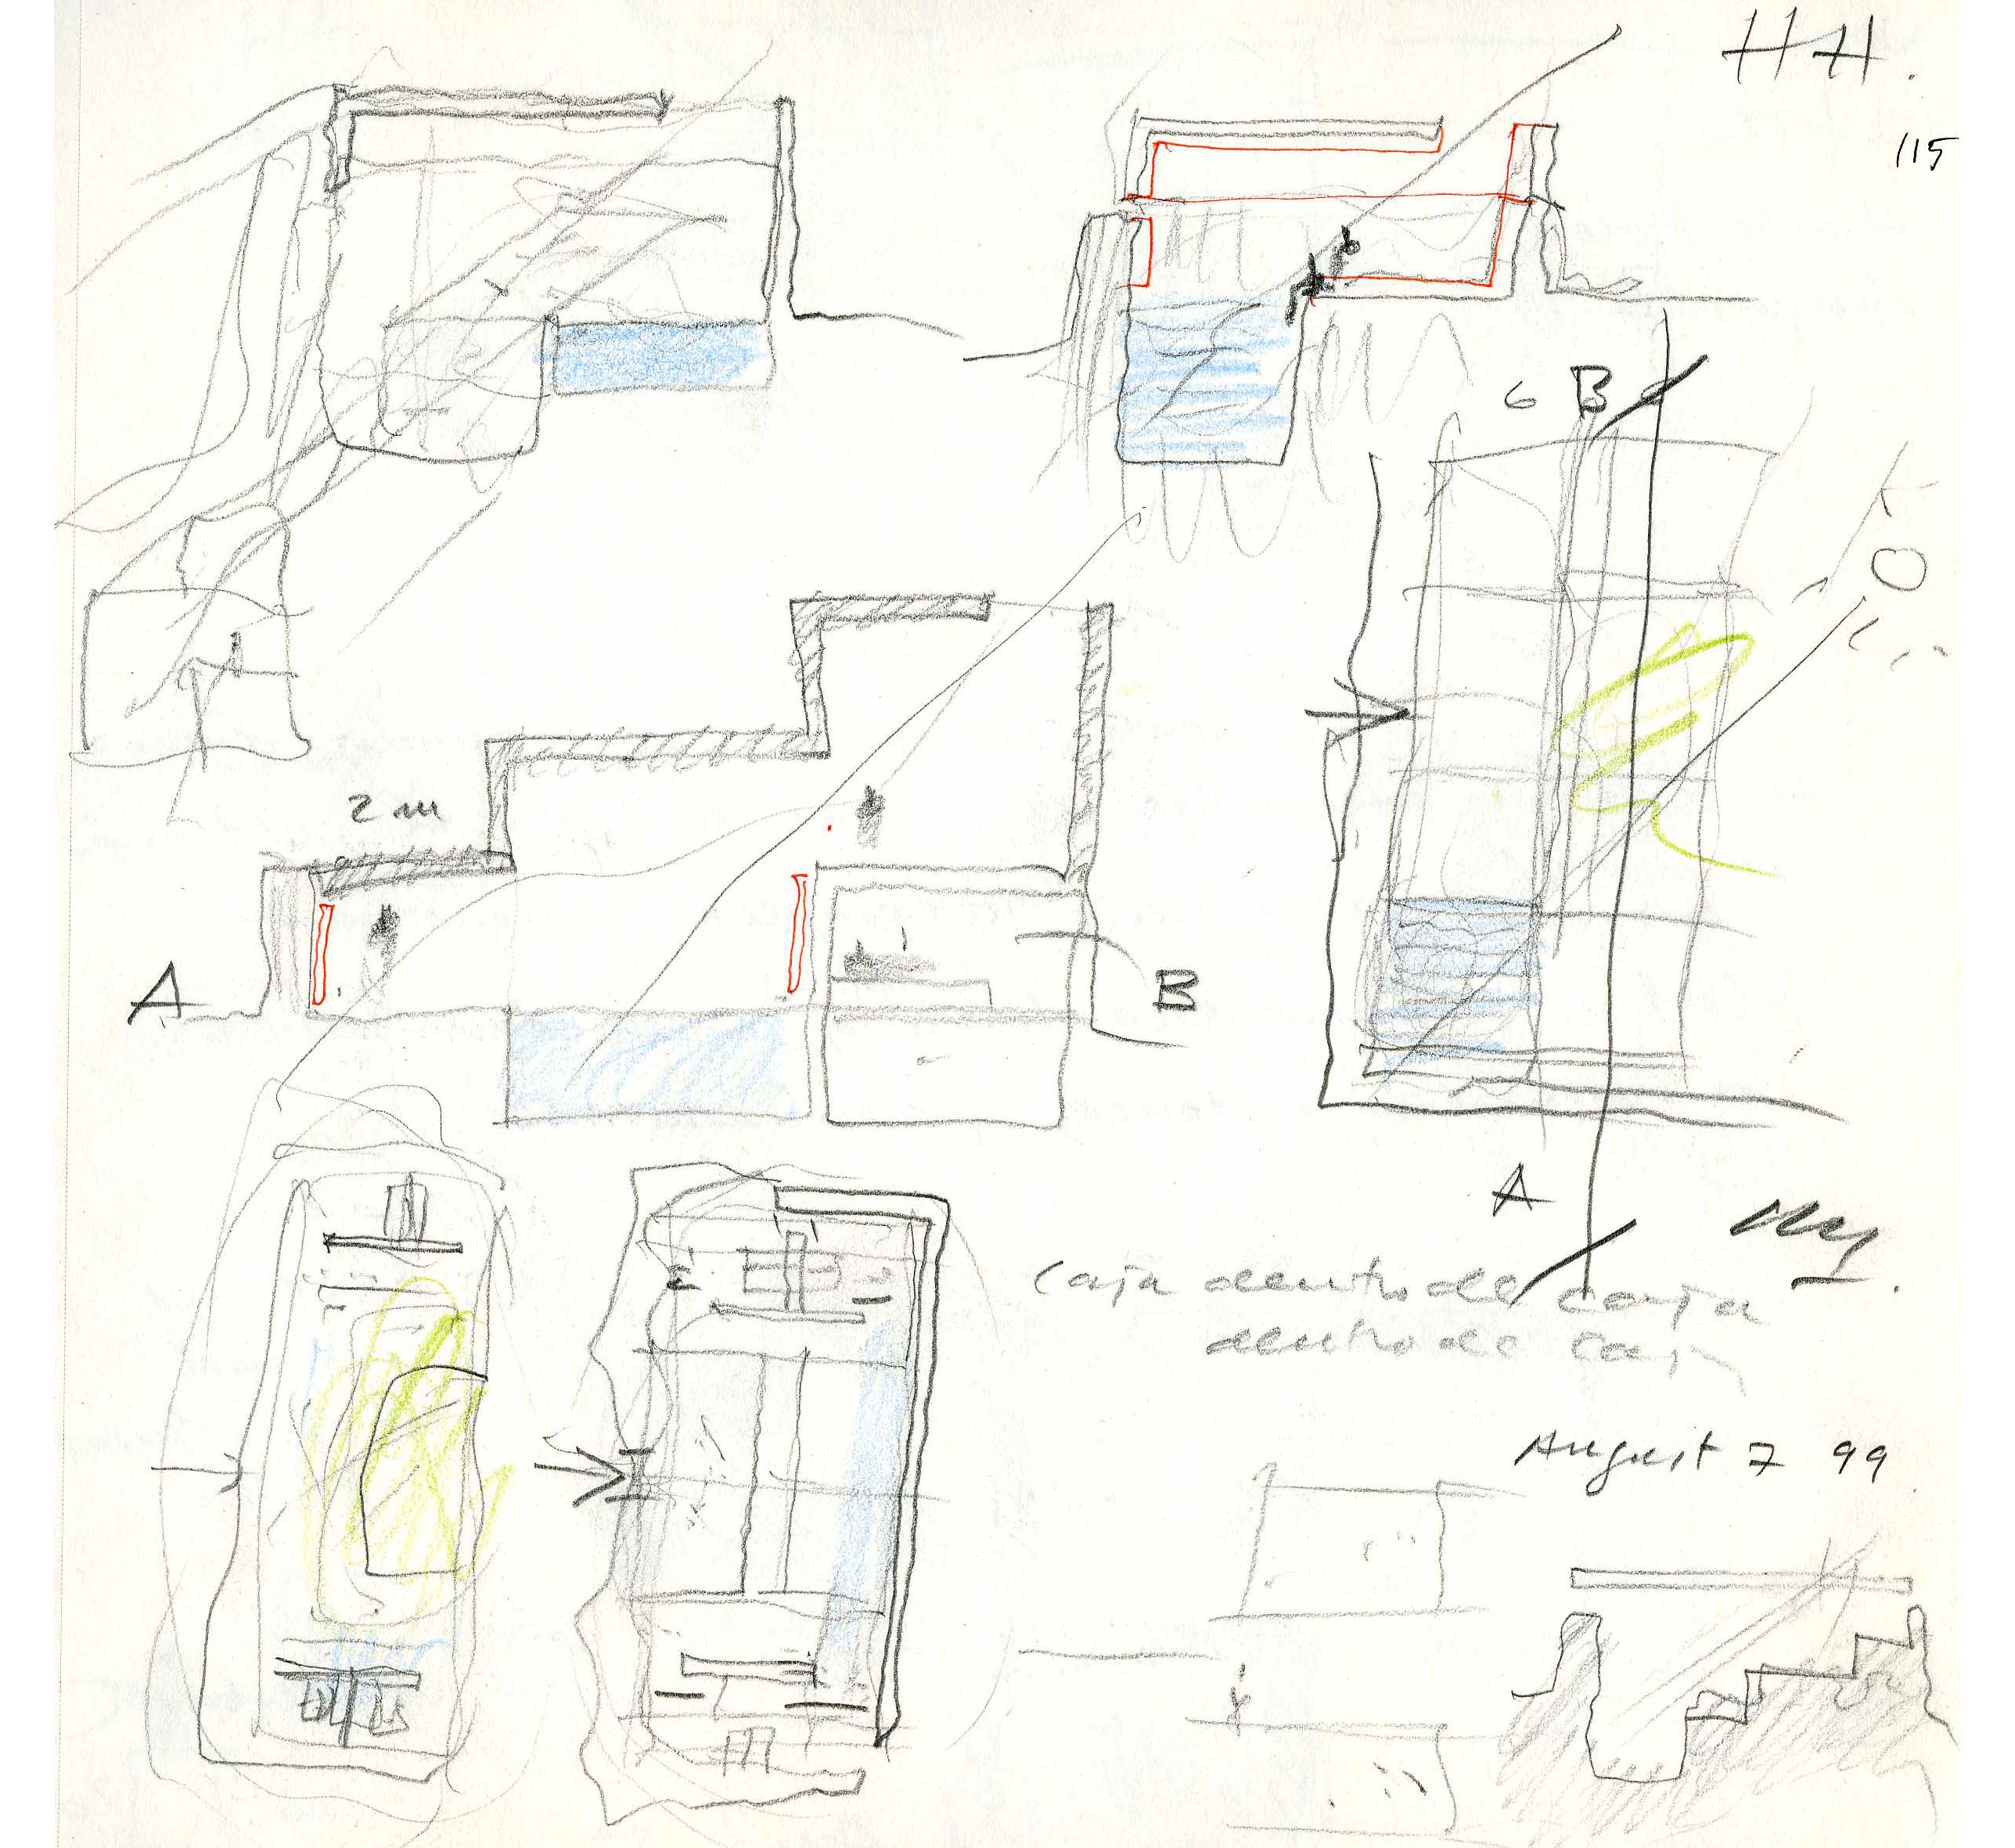 HH.
115
6 B
2 m
A
B
A
caja dentro de caja
dentro de caja
August 7 99